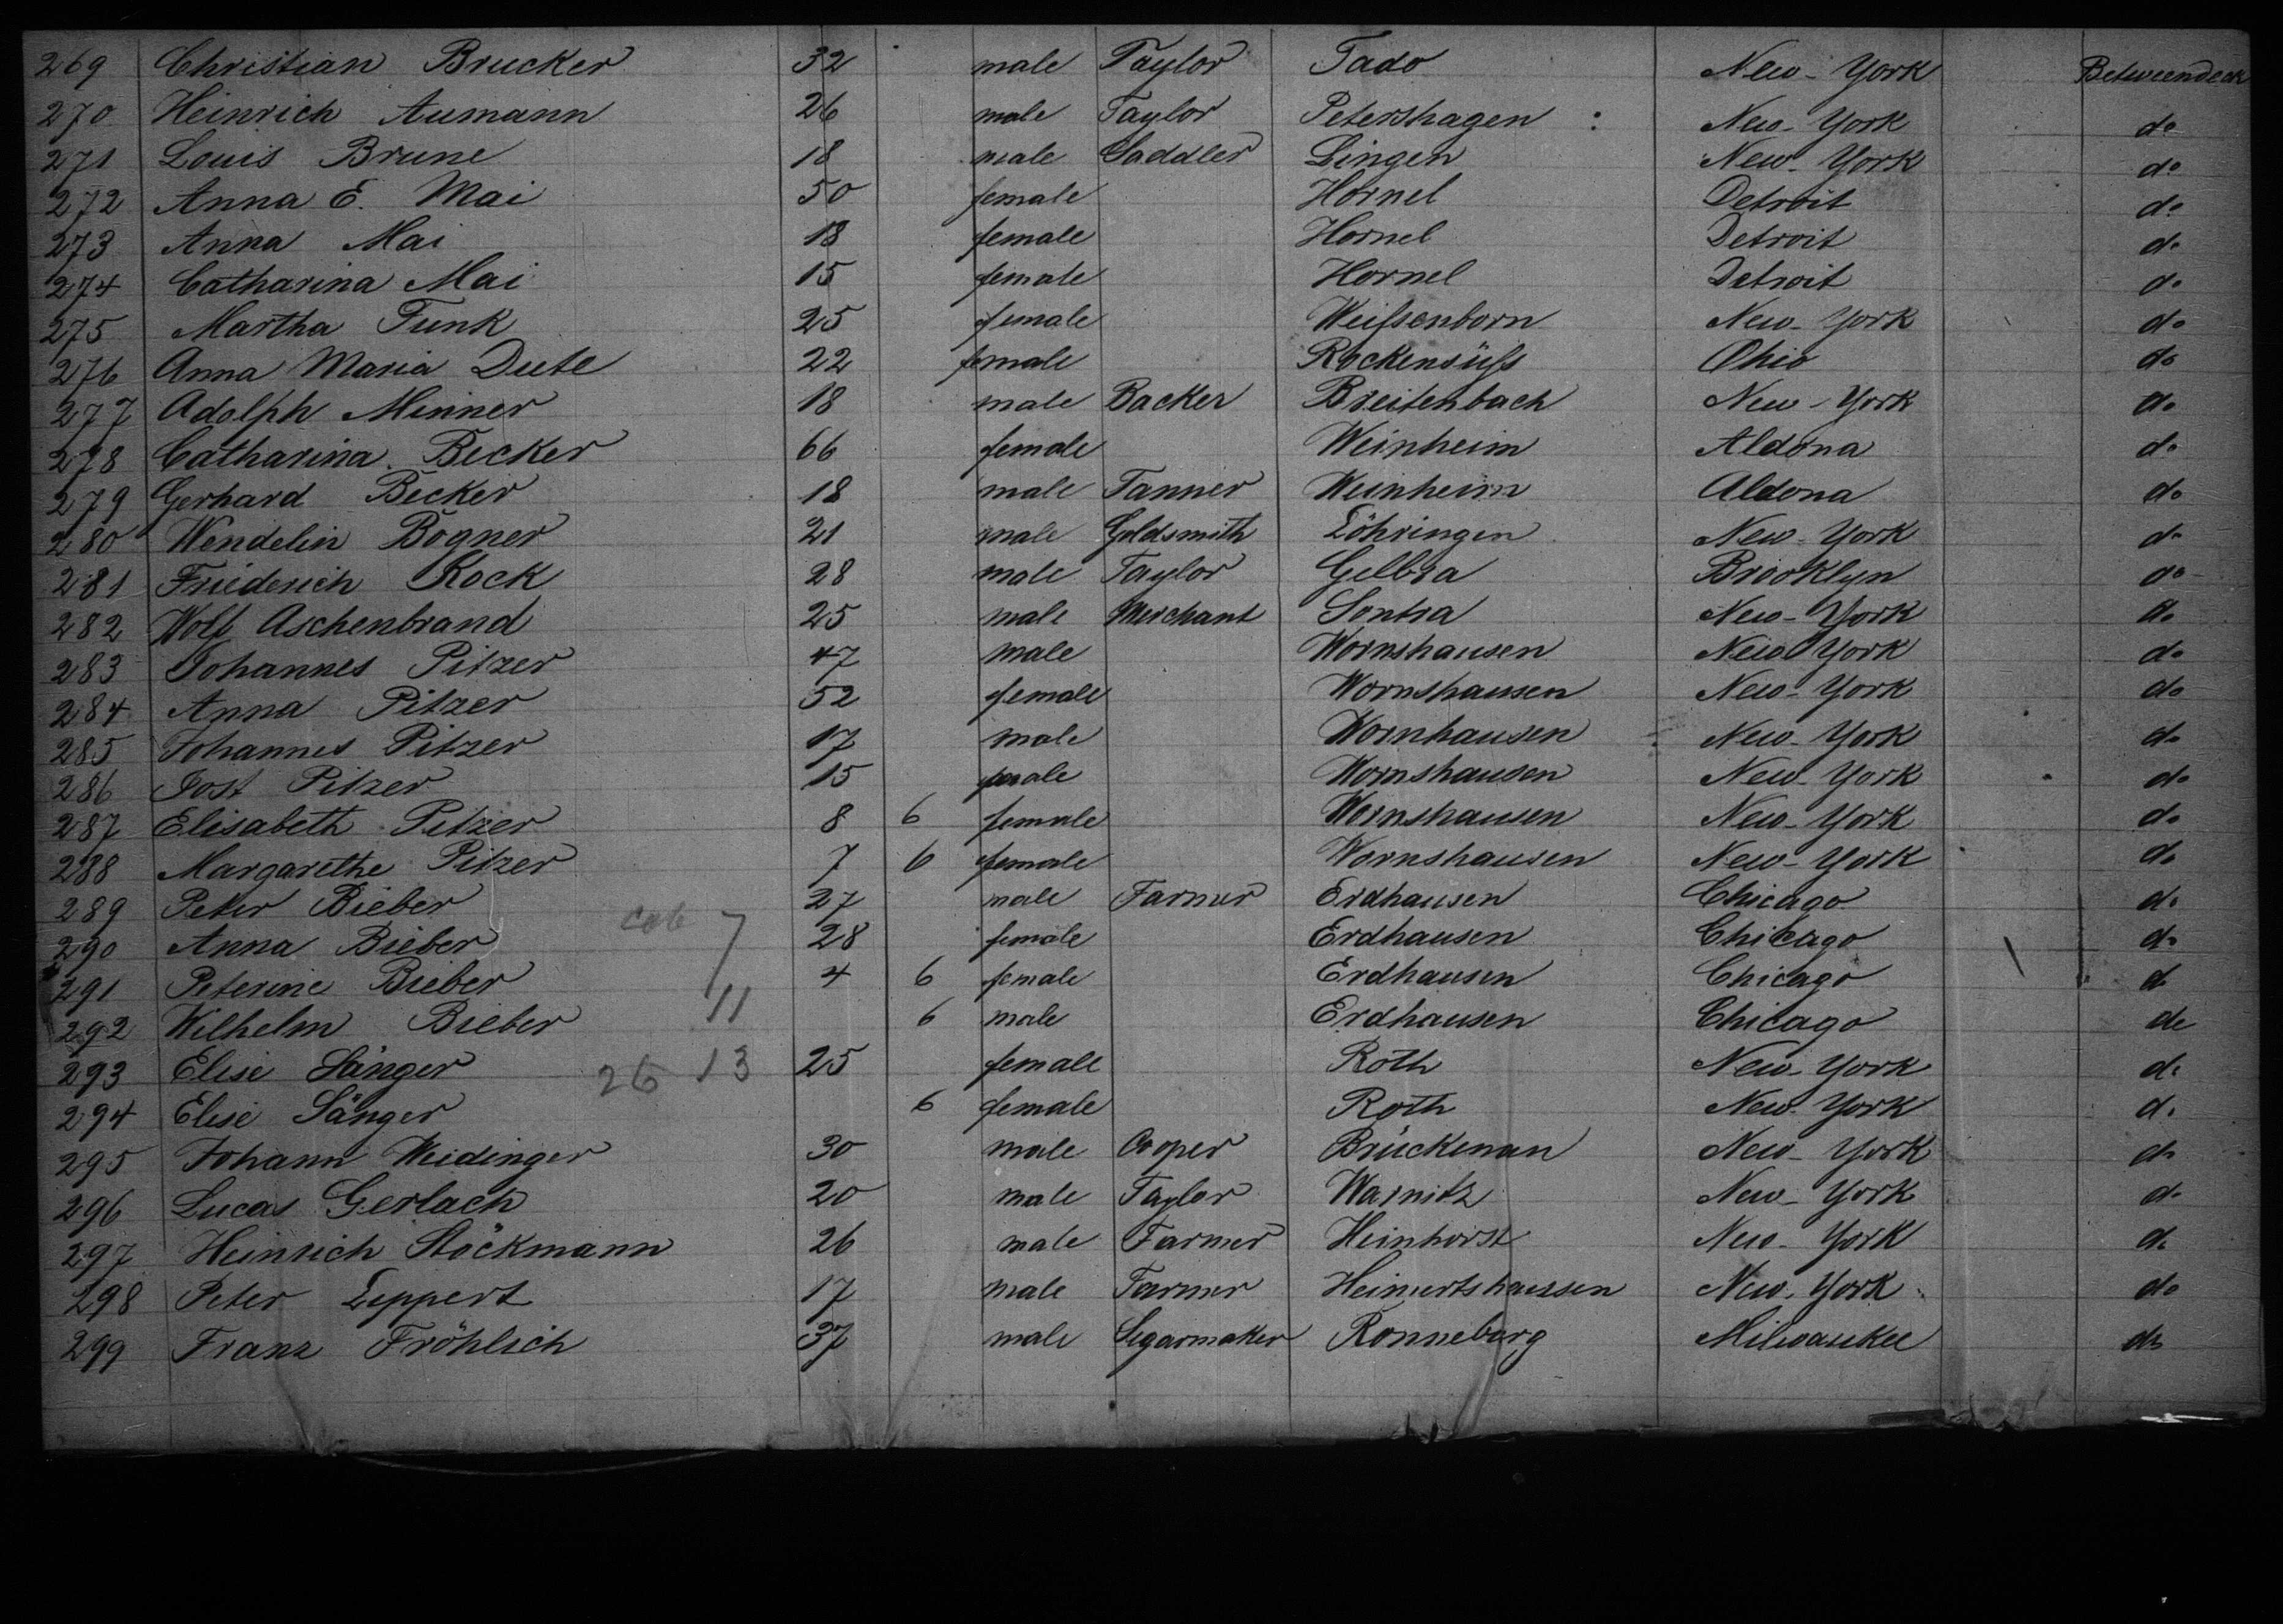 269 Christian Brucker 32 male Taylor Tado New-York Betweendeck
270 Heinrich Aumann 26 male Taylor Petershagen : New-York do
271 Louis Brune 18 male Saddler Lingen New-York do
272 Anna E. Mai 50 female Hornel Detroit do
273 Anna Mai 18 female Hornel Detroit do
274 Catharina Mai 15 female Hornel Detroit do
275 Martha Funk 25 female Weißenborn New-York do
276 Anna Maria Dute 22 female Rockensüß Ohio do
277 Adolph Minner 18 male Backer Breitenbach New-York do
278 Catharina Becker 66 female Weinheim Aldona do
279 Gerhard Becker 18 male Tanner Weinheim Aldona do
280 Wendelin Bogner 21 male Goldsmith Löhringen New-York do
281 Friederich Rock 28 male Taylor Gelbra Brooklyn do
282 Wolf Aschenbrand 25 male Merchant Sontra New-York do
283 Johannes Pitzer 47 male Wornshausen New York do
284 Anna Pitzer 52 female Wornshausen New-York do
285 Johannes Pitzer 17 male Wornhausen New-York do
286 Jost Pitzer 15 male Wornshausen New-York do
287 Elisabeth Pitzer 8 6 female Wornshausen New-York do
288 Margarethe Pitzer 7 6 female Wornshausen New-York do
289 Peter Bieber 27 male Farmer Erdhausen Chicago do
290 Anna Bieber 7 28 female Erdhausen Chicago do
291 Peterine Bieber 4 6 female Erdhausen Chicago do
292 Wilhelm Bieber 11 6 male Erdhausen Chicago do
293 Elise Sänger 26 13 25 female Roth New-York do
294 Elise Sänger 6 female Roth New-York do
295 Johann Weidinger 30 male Cooper Brückenau New-York do
296 Lucas Gerlach 20 male Taylor Warnitz New-York do
297 Heinrich Stöckmann 26 male Farmer Heinhorst New-York do
298 Peter Leppert 17 male Farmer Heimertshaussen New-York do
299 Franz Fröhlich 37 male Segarmaker Ronneburg Milwaukee do